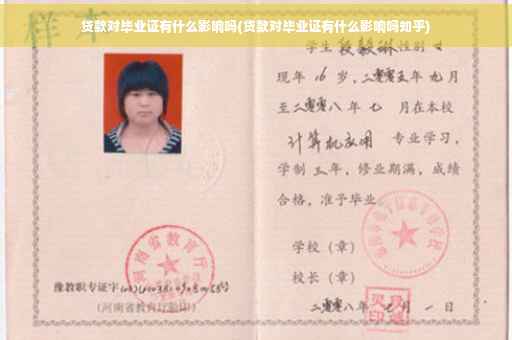 贷款对毕业证有什么影响吗(贷款对毕业证有什么影响吗知乎)
样本
学生 段毅琳 性别 女
现年 16 岁，二零零五年 九月
至二零零八年 七 月在本校
计算机应用 专业学习，
学制 三年，修业期满，成绩
合格，准予毕业
学校（章）
河南省教育厅
校长（章）
豫教职专证字
(河南省教育厅验印)
二零零八年 月 一 日